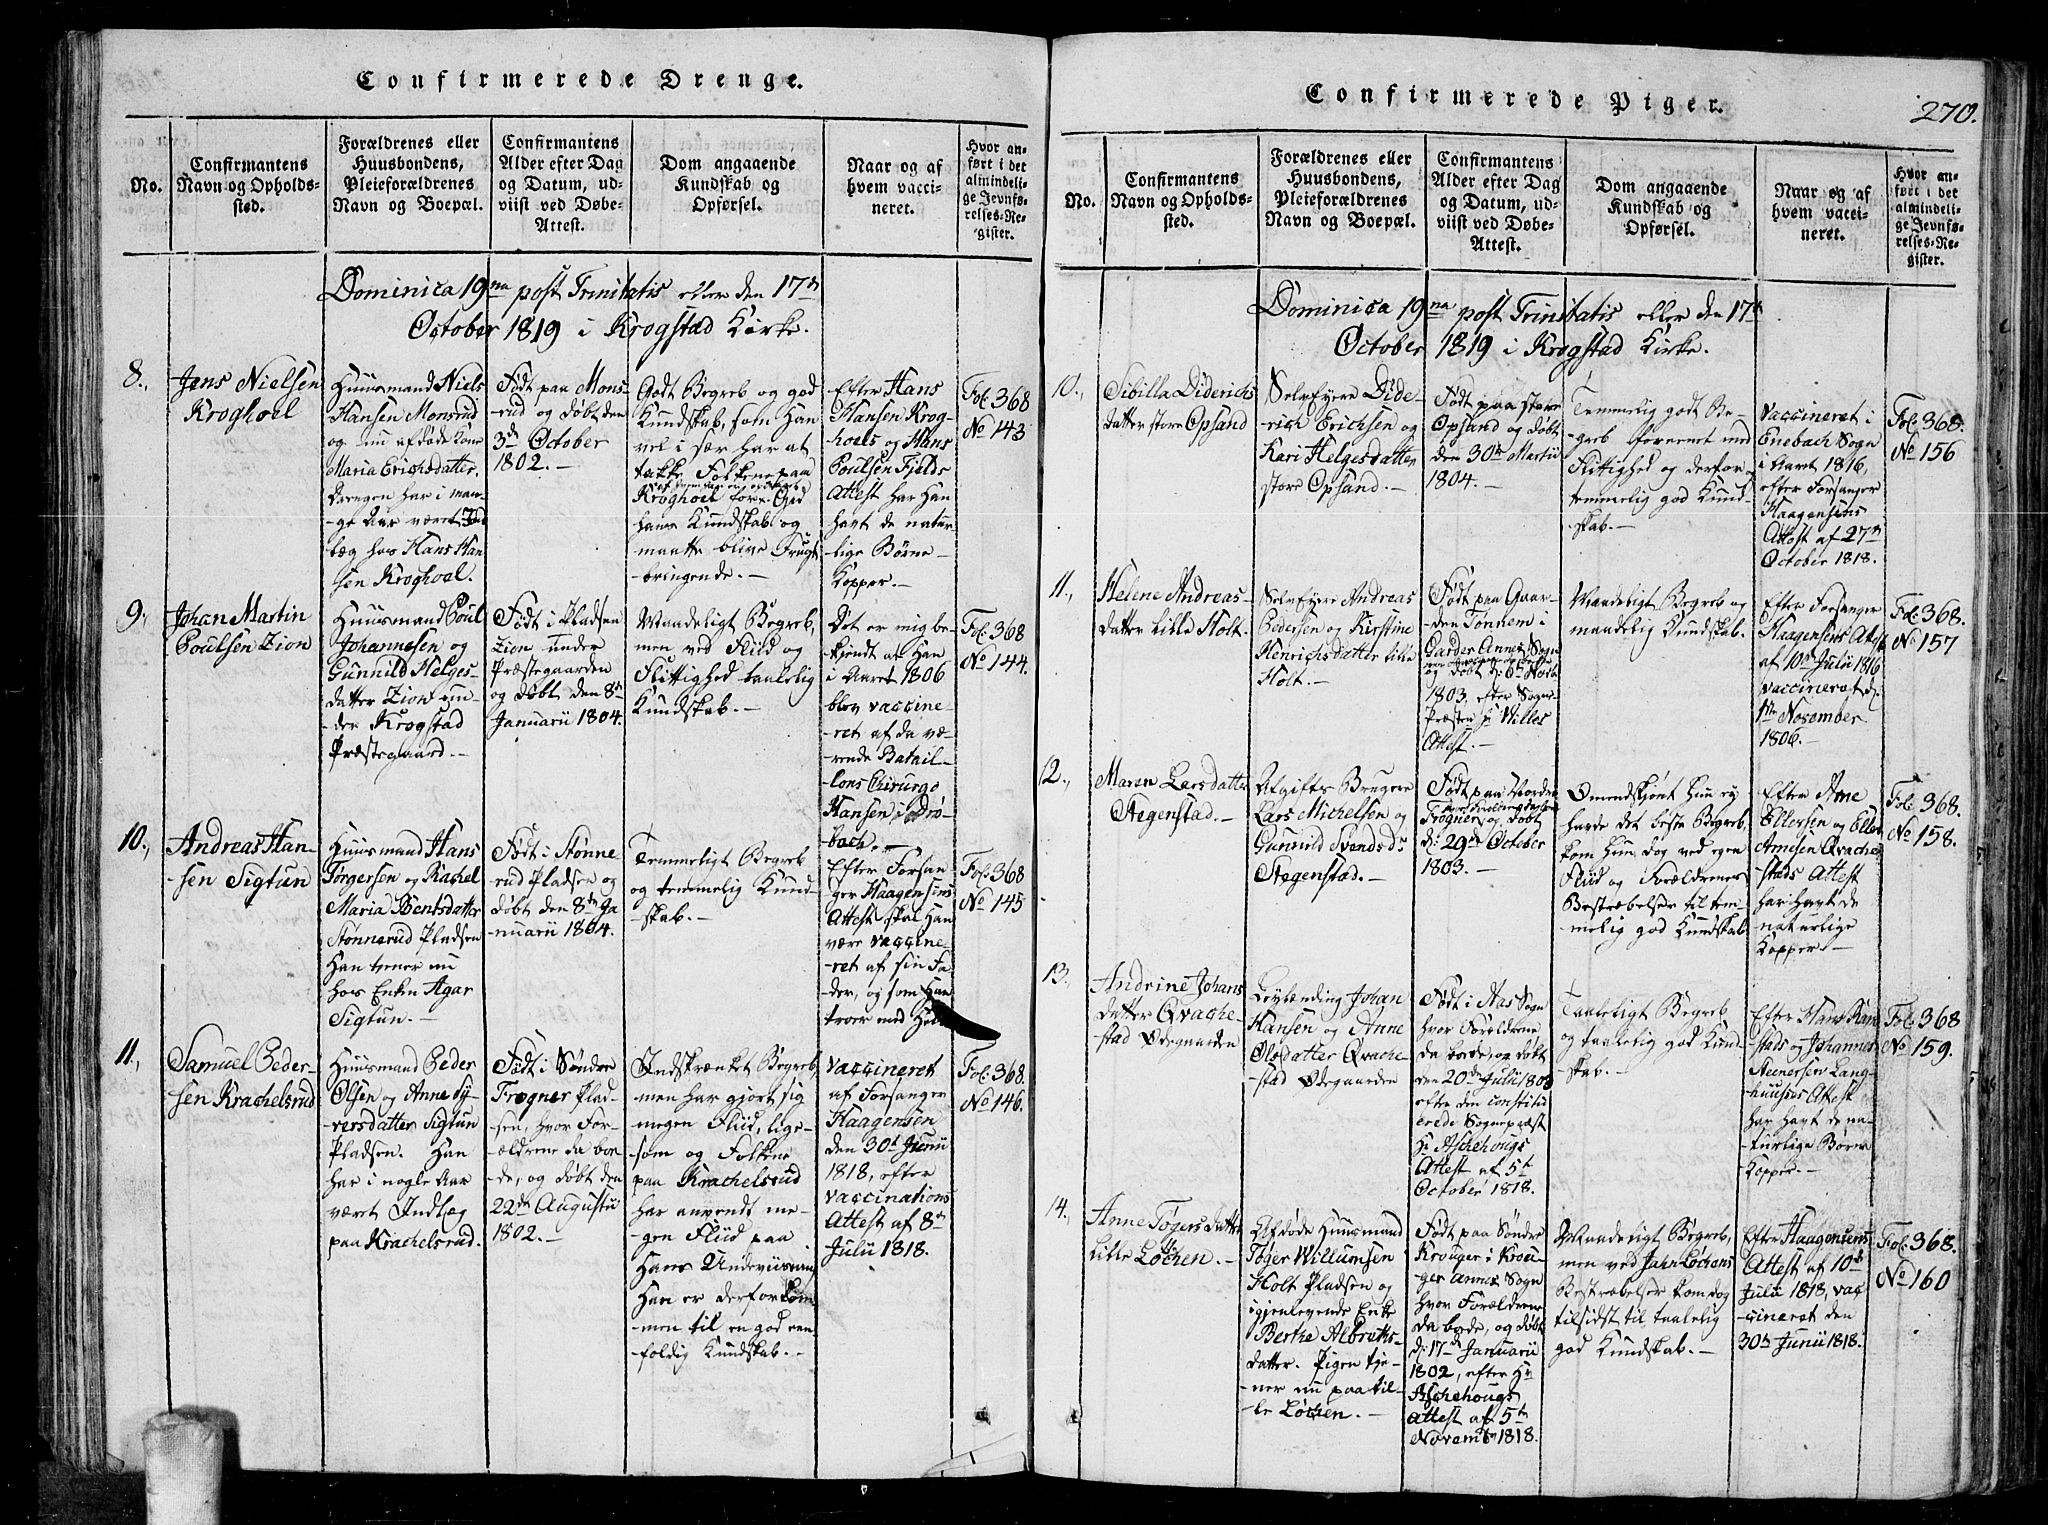 Confirmerede Drenge.
No.
Confirmantens
Navn og Opholds-
sted.
Forældrenes eller
Huusbondens,
Pleieforældrenes
Navn og Boepæl.
Confirmantens
Alder efter Dag
og Datum, ud-
viist ved Døbe-
Attest.
Dom angaaende
Kundskab og
Opførsel.
Naar og af
hvem vacci-
neret.
Hvor an-
ført i det
almindeli-
ge Jevnfø-
relses-Re-
gister.
Dominica 19na post Trinitatis eller den 17de
October 1819 i Krogstad Kirke.
8.,
Jens Nielsen
Kroghoel
Huusmand Niels
Hansen Monsrud
og nu afdøde Kone
Maria Erichsdatter.
Drengen har i man-
-ge Aar været Ind
læg hos Hans Han
sen Kroghoel.
Født paa Mons-
rud og døbt den
3de October
1802.-
Godt Begreb og god
Kundskab, som Han
vel i sær har at
takke Folkene paa
Kroghoel for. Gud
hans Kundskab og
maatte blive Frugt-
-bringende.-
Efter Hans
Hansen Krog-
hoels og Hans
Poulsen Fjelds
Attest har Han
havt de natur-
lige Børne-
Kopper.-
Fol: 368
No 143
9.,
Johan Martin
Poulsen Zion
Huusmand Poul
Johannesen og
Gunnild Helges-
datter Zion un-
der Krogstad
Præstegaard.-
Født i Pladsen
Zion under
Præstegaarden
og døbt den 8de
Januarii 1804.
Maadeligt Begreb,
men ved Fliid og
Flittighed taalelig
Kundskab.-
Det er mig be-
kjendt at Han
i Aaret 1806
blev vaccine-
ret af da væ-
rende Batail-
lons Chirurgo
Hansen i Drø-
bach.-
Fol: 368
No 144.
10.,
Andreas Han-
-sen Sigtun
Huusmand Hans
Torgersen og Rachel
Maria Bentsdatter
Stønnerud Pladsen
Han tener nu
hos Enken Agar
Sigtun.-
Født i Stønne-
rud Pladsen og
døbt den 8de Ja
nuarii 1804.
Temmeligt Begreb
og temmelig Kund-
-skab.-
Efter Forsan
ger Haagensens
Attest skal Han
være vaccine-
-ret af sin Fa-
-der, og som Han
troer med
Fol: 368
No 145
11,
Samuel Peder-
sen Krachelsrud
Huusmand Peder
Olsen og Anne Sy-
versdatter Sigtun
Pladsen. Han
har i nogle Aar
været Indlæg
paa Krachelsrud.
Født i Søndre
Trogner Plad-
sen, hvor For-
-ældrene da boe-
de, og døbt den
22de Augusti
1802.-
Indskrænket Begreb,
men har gjort sig
megen Fliid, lige-
som og Folkene
paa Krachelsrud
har anvendt me-
gen Fliid paa
Hans Underviisning
Han er derfor kom
-men til en god een-
-foldig Kundskab.-
vaccineret
af Forsanger
Haagensen
den 30te Junii
1818, efter
vaccinations
Attest af 8de
Julii 1818.
Fol: 368.
No 146.
Confirmerede Piger.
270.
No.
Confirmantens
Navn og Opholds-
sted.
Forældrenes eller
Huusbondens,
Pleieforældrenes
Navn og Boepæl.
Confirmantens
Alder efter Dag
og Datum, ud-
viist ved Døbe-
Attest.
Dom angaaende
Kundskab og
Opførsel.
Naar og af
hvem vacci-
neret.
Hvor an-
ført i det
almindeli-
ge Jevnfø-
relses-Re-
gister.
Dominica 19na post Trinitatis eller den 17de
October 1819 i Krogstad Kirke.
10.,
Sibilla Diderichs
datter store Opsand
Selvejere Dide-
rich Erichsen og
Kari Helgesdatter
store Opsand.-
Født paa store
Opsand og døbt
den 30te Martii
1804.-
Temmelig godt Be-
greb forenet med
Flittighed og derfor
temmelig god Kund-
skab.-
Vaccineret i
Enebach Sogn
i Aaret 1816,
efter Forsanger
Haagensens
Attest af 27de
October 1818.
Fol: 368.
No 156
11.,
Helene Andreas-
datter lille Holt.
Selvejere Andreas
Pedersen og Kirstine
Henrichsdatter lille
Holt.-
Født paa Gaar-
den Tonnem i
Garder Annex Sogn
og døbt d: 6te
1803. efter Sogne-
Præsten Hr Willes
Attest.-
Maadeligt Begreb og
maadelig Kundskab.
Efter Forsanger
Haagensens Attest
af 10de Julii 1816
vaccineret d.
1ste November
1806.-
Fol: 368.
No 157
12.,
Maren Larsdatter
Stegenstad.-
Afgifts Brugere
Lars Michelsen og
Gunnild Svends Dr
Stegenstad.-
Født paa Nordre
Trogner og døbt
d: 29de October
1803.-
Omendskjønt Hun ej
havde det beste Begreb,
kom Hun dog ved egen
Fliid og Forældrenes
Bestræbelser til tem-
melig god Kundskab
Efter Arne
Ellefsen og Ellef
Arnesen Qvache-
stads Attest
har Havt de
naturlige
Kopper.-
Fol: 368.
No 158.
13.,
Andrine Johans
datter Qvache-
stad Ødegaarden
Leylænding Johan
Hansen og Anne
Olsdatter Qvache
-stad Ødegaarden
Født i Aas Sogn
hvor Forældrene
da boede, og døbt
den 20de Julii 1803
efter den constitu
erede Sognepræst
Hr Aschehougs
Attest af 5te
October 1818.
Taaleligt Begreb
og taalelig god Kund
skab.-
Efter Hans Ram
stads og Johannes
Steenersen Lang-
huuses Attest
har havt de na-
turlige Børne
Kopper.-
Fol: 368
No 159.
14.,
Anne Tøgersdatter
lille Løchen.-
Afdøde Huusmand
Tøger Willumsen
Holt Pladsen og
igjenlevende Enke
Berthe Albrethts-
datter. Pigen tje-
ner nu paa lil-
le Løchen.-
Født paa Søndre
Kroger i Kroer
Annex Sogn
hvor Forældrene
da boede, og døbt
d: 17de Januarii
1802, efter Hr
Aschehougs
Attest af 5te
Novembr 1818.
Maadeligt Begreb,
men ved John Løchens
Bestræbelser kom dog
tilsidst til taalelig
god Kundskab.-
Efter Haagensens
Attest af 10de
Julii 1818, vac
cineret den
30te Junii 1818.
Fol: 368.
No 160